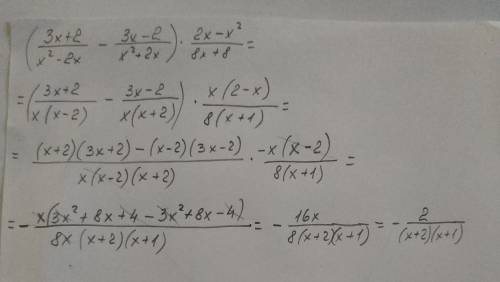 (3x+2/x²-2x - 3x-2/x²+2x) · 2x-x²/8x+8 =
= (3x+2/x(x-2) - 3x-2/x(x+2)) · x(2-x)/8(x+1) =
= (x+2)(3x+2)-(x-2)(3x-2)/x(x-2)(x+2) · -x(x-2)/8(x+1) =
= - x(3x²+8x+4-3x²+8x-4)/8x(x+2)(x+1) = - 16x/8(x+2)(x+1) = - 2/(x+2)(x+1)